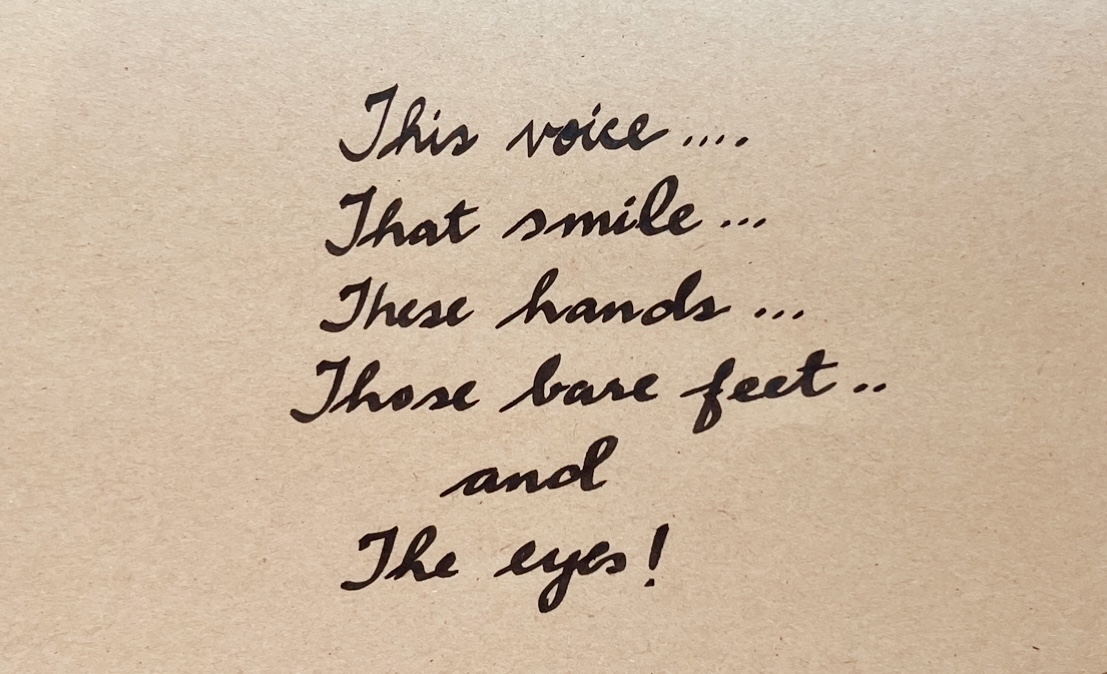 This voice....
That smile...
These hands...
Those bare feet..
and
The eyes!